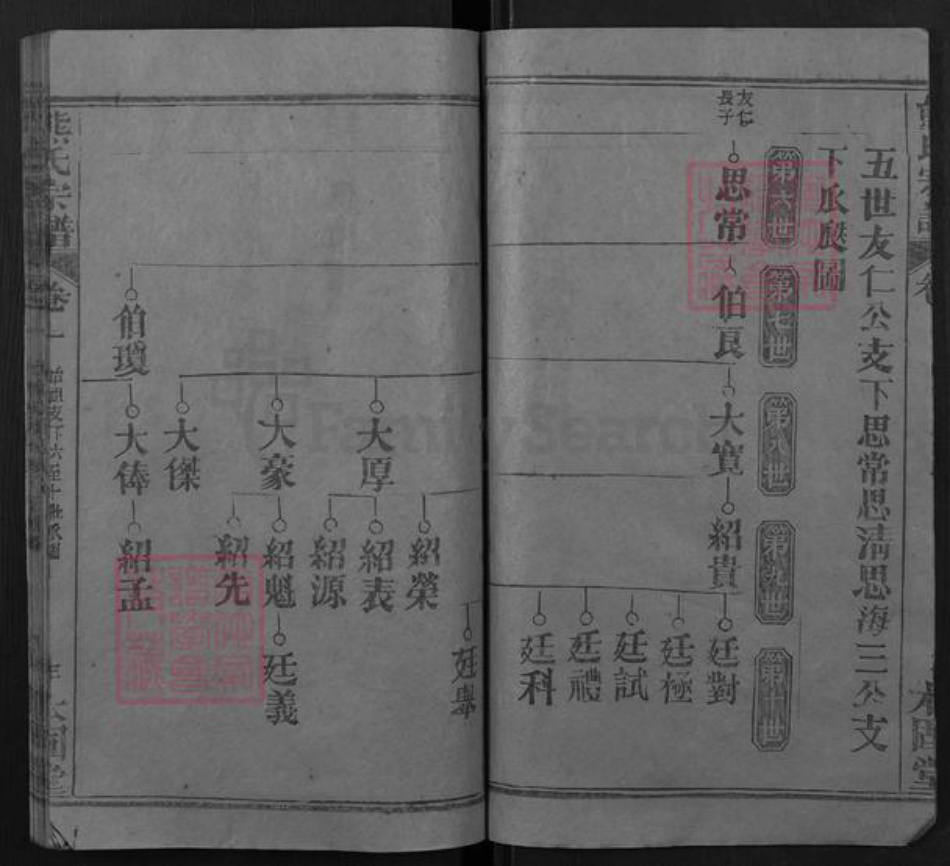 五世友仁公支下思常思清思海三公支
下瓜瓞圖
第六世
第七世
第八世
第九世
第十世
友仁
長子
思常
伯良
大寬
紹貴
廷對
廷極
廷試
廷禮
廷科
廷舉
紹榮
大厚
紹表
紹源
大豪
紹魁
廷義
紹先
大傑
伯瓊
大俸
紹孟
熊氏宗譜
卷一
本固堂
Family Search